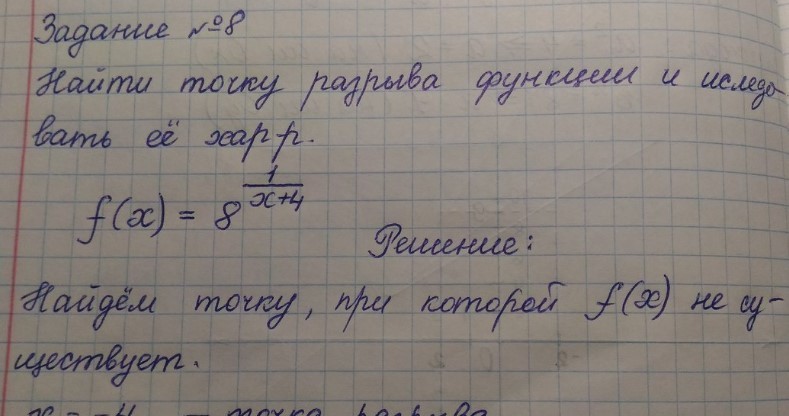 Задание №8
Найти точку разрыва функции и иследо-
вать её хар-р.
f(x) = 8^{\frac{1}{x+4}}
Решение:
Найдём точку, при которой f(x) не су-
ществует.
x = -4 – точка разрыва